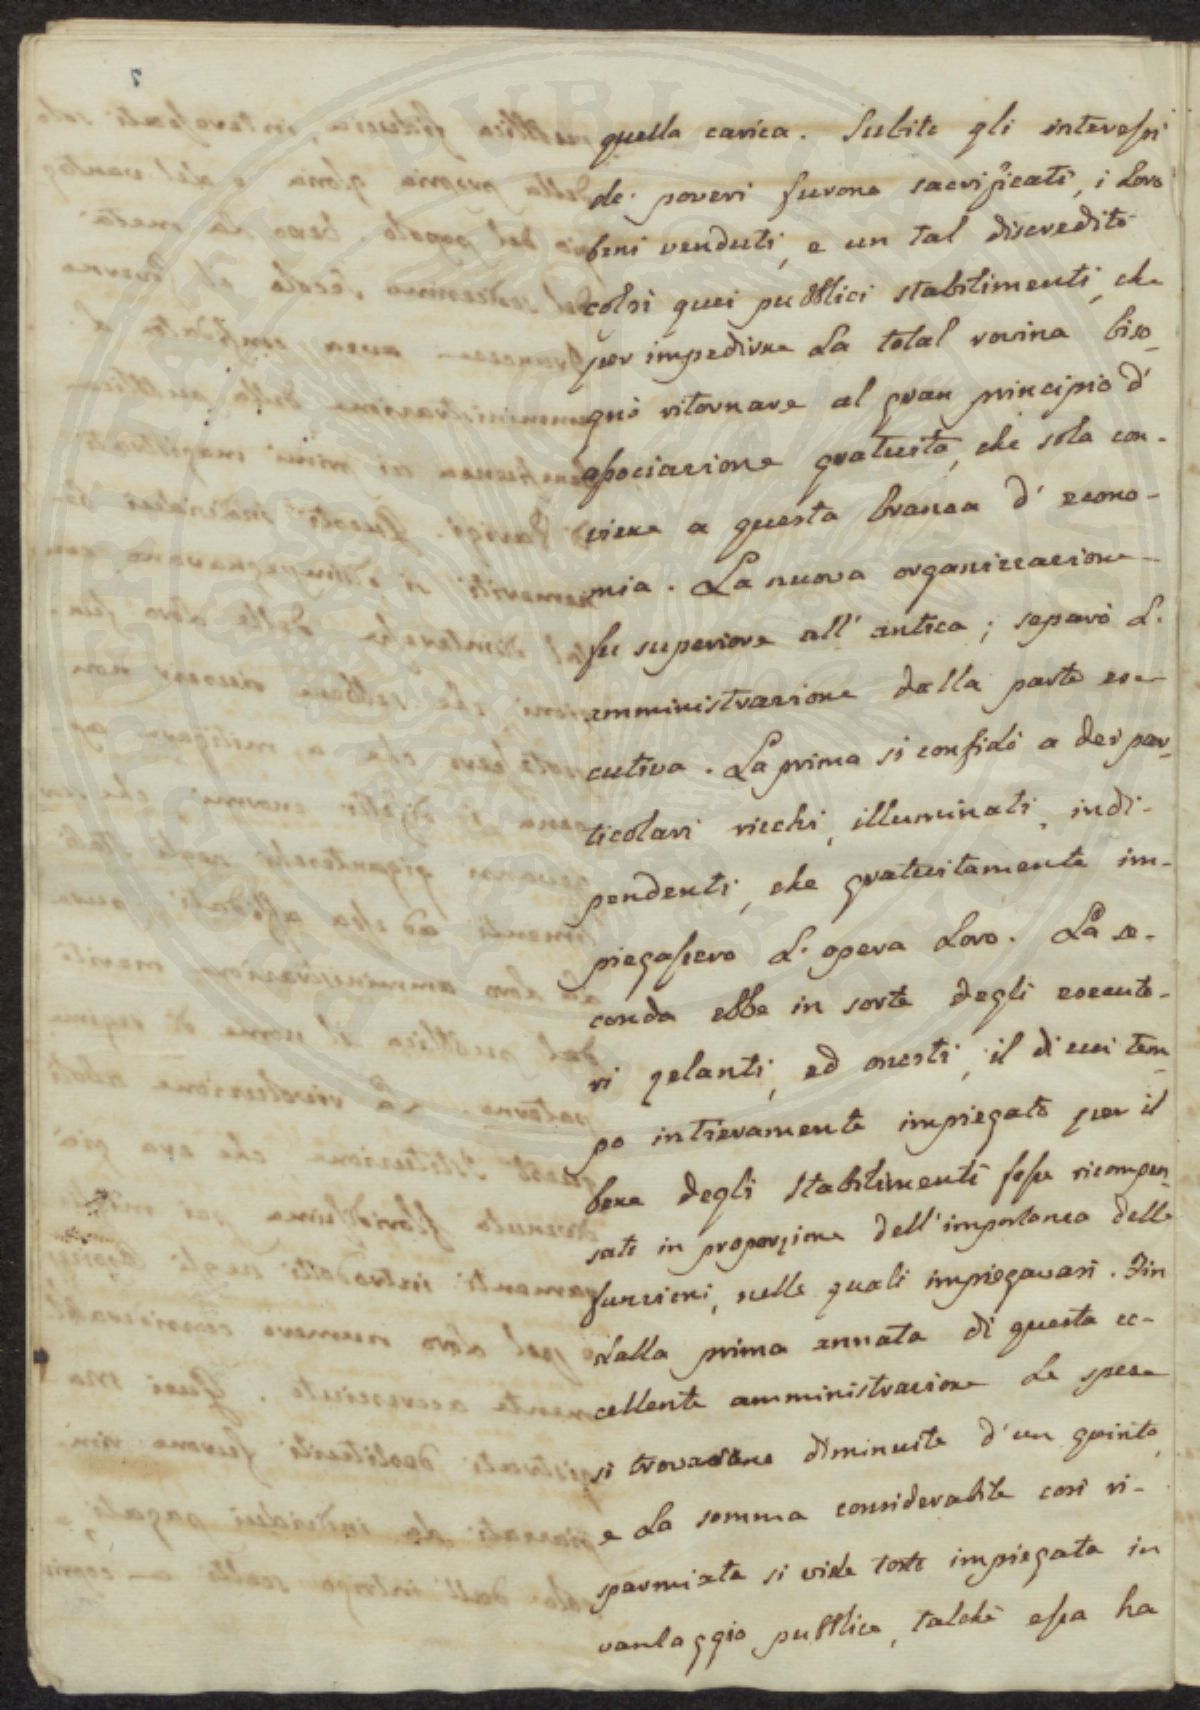 quella carica. Subito gli interessi
de' poveri furono sacrificati, i loro
beni venduti, e un tal discredito
colpì quei pubblici stabilimenti, che
per impedirne la total rovina biso-
gnò ritornare al gran principio d'
associazione gratuita, che sola con-
viene a questa branca d' econo-
mia. La nuova organizzazione
fu superiore all' antica; separò l'
amministrazione dalla parte ese-
cutiva. La prima si confidò a dei par-
ticolari ricchi, illuminati, indi-
pendenti, che gratuitamente im-
piegassero l' opera loro. La se-
conda ebbe in sorte degli esecuto-
ri zelanti, ed onesti, il di cui tem-
po intieramente impiegato per il
bene degli stabilimenti fosse ricompen-
sato in proporzione dell' importanza delle
funzioni, nelle quali impiegavasi. Fin
dalla prima annata di questa ec-
cellente amministrazione le spese
si trovarono diminuite d' un quinto,
e la somma considerabile così ri-
sparmiata si vide tosto impiegata in
vantaggio pubblico, talchè essa ha